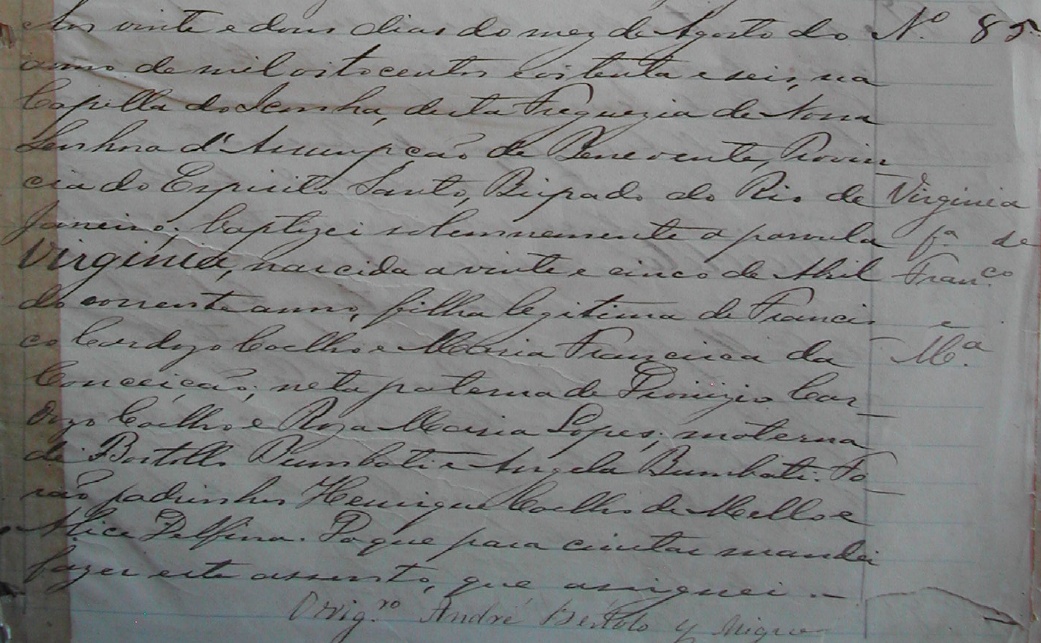 Aos vinte e dous dias do mez de Agosto do
anno de mil oitocentos e oitenta e seis, na
Capella do Iconha, desta Freguezia de Nossa
Senhora d'Assumpção de Benevente, Provin
cia do Espirito Santo, Bispado do Rio de
Janeiro; baptizei solemnemente a parvula
Virginia, nascida a vinte e cinco de Abril
do corrente anno, filha legitima de Francis
co Cardozo Coelho e Maria Francisca da
Conceição; neta paterna de Dionizio Car-
dozo Coelho e Roza Maria Lopes; materna
de Bortollo e Angela Bumbati. Fo-
rão padrinhos Henrique Coelho de Mello e
Alice Delfina. Do que para constar mandei
fazer este assento, que assignei. -
O vig.ro André
Nº 85
Virginia
fª de
Fran.co
e
M.ª